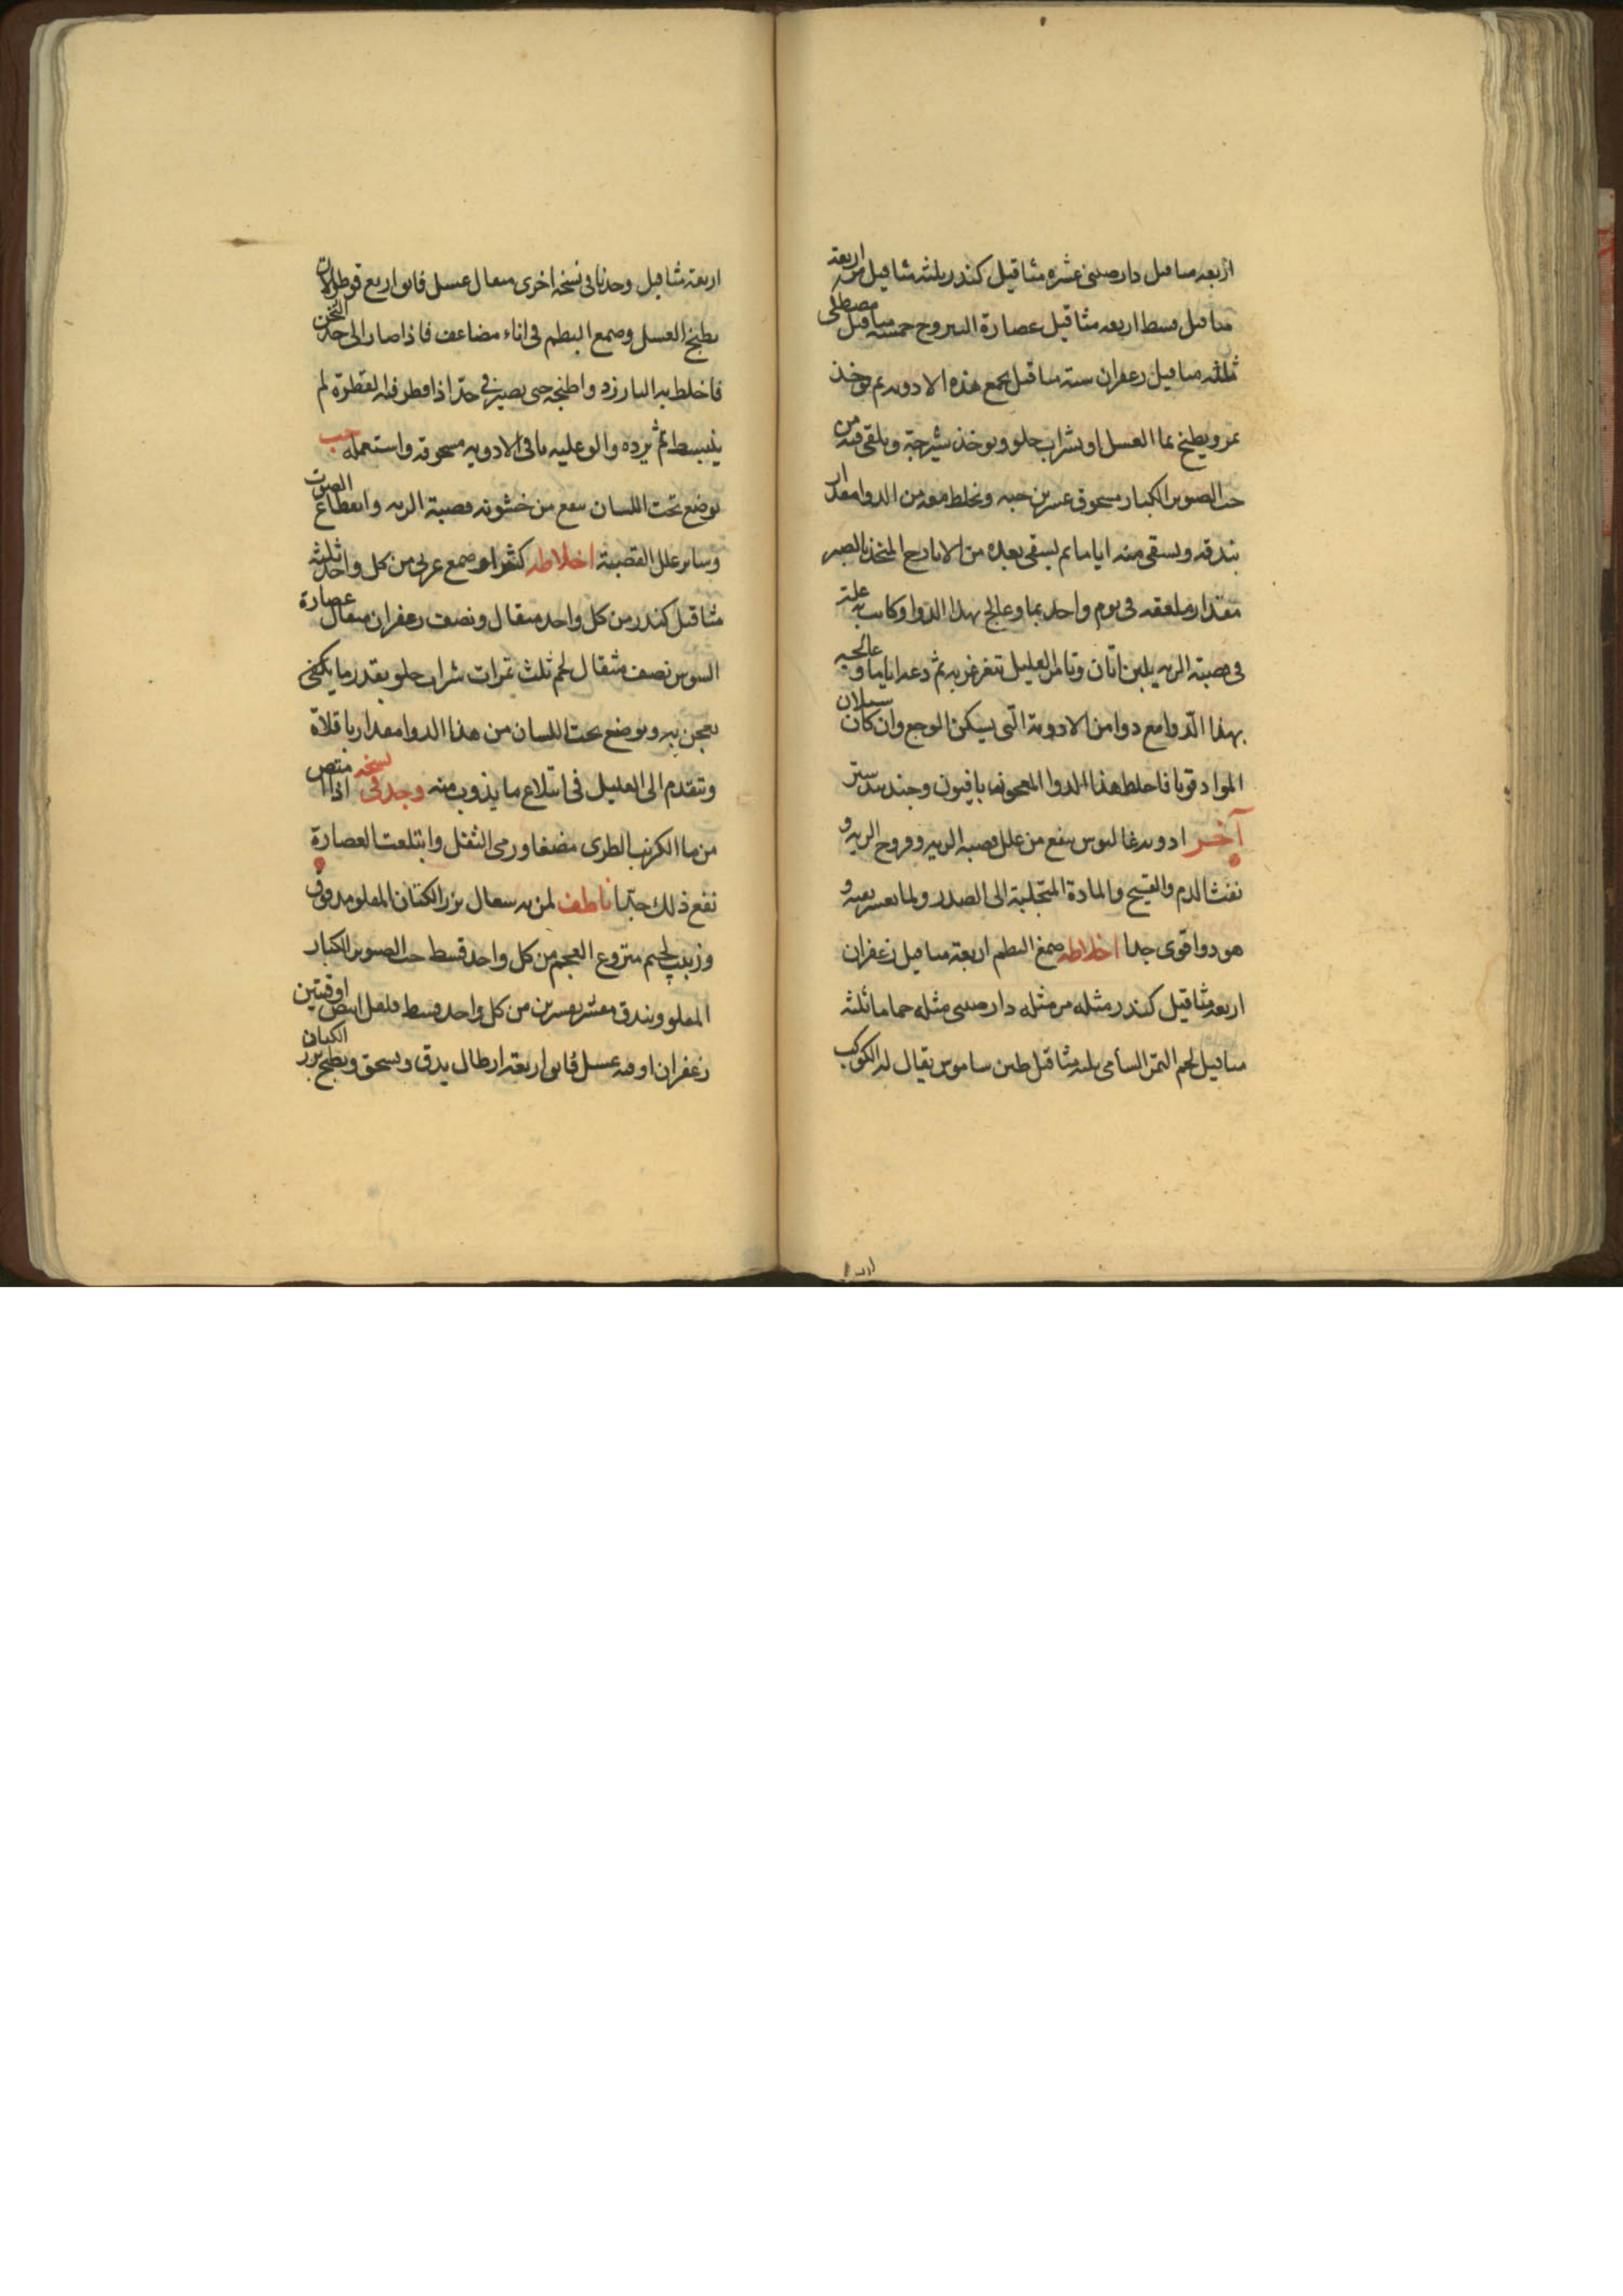 اربعه مثاقيل دارصينى عشره مثاقيل كندر ثلثه مثاقيل مر اربعة
مثاقيل قسط اربعه مثاقيل عصارة اليبروح خمسه مثاقيل مصطكى
ثلثه مثاقيل زعفران ستة مثاقيل يجمع هذه الادويه ثم يوخذ
تمر ويطبخ بما العسل او بشراب حلو ويوخذ شيرجة ويلقى فيه من
حب الصنوبر الكبار مسحوق عشرين حبه ويخلط معه من الدوا مقدار
بندقه ويسقى منه اياما ثم يسقى بعده من الايارج المتخذ بالصبر
مقدار ملعقه فى يوم واحد بما وعالج بهذا الدوا وكانت به علة
فى قصبة الريه بلبن اتان وتامر العليل يتغرغر به ثم دعه اياما وعالجه
بهذا الدوا مع دوا من الادوية التى يسكن الوجع وان كان سيلان
المواد قويا فاخلط هذا الدوا المعجونه بافيون وجندبيدستر
آخر ادويه غالينوس ينفع من علل قصبه الريه وقروح الريه و
نفث الدم والقيح والمادة المتحلبة الى الصدر ولما يعسر نفثه و
هو دوا قوى جدا اخلاطه صمغ البطم اربعة مثاقيل زعفران
اربعه مثاقيل كندر مثله مر مثله دارصينى مثله حماما ثلثه
مثاقيل لحم التمر الشأمى ثلثه مثاقيل طين ساموس يقال له الكوكب
اربعة مثاقيل وجدنا فى نسخه اخرى مثقال عسل فايق اربع قوطولات
يطبخ العسل وصمع البطم فى اناء مضاعف فاذا صار الى حد الثخن
فاخلط به البارزد واطبخه حتى يصير فى حد اذا قطر منه القطرة لم
ينبسط ثم برده والق عليه باقى الادويه مسحوقه واستعمله حب
يوضع تحت اللسان ينفع من خشونه قصبة الريه وانقطاع الصوت
وساير علل القصبة اخلاطه كثيرا وصمع عربى من كل واحد ثلثه
مثاقيل كندر من كل واحد مثقال ونصف زعفران مثقال عصارة
السوس نصف مثقال لحم ثلث تمرات شراب حلو بقدر ما يكتفى
يعجن به ويوضع تحت اللسان من هذا الدوا مقدار باقلاة
وتتقدم الى العليل فى ابتلاع ما يذوب منه وجد فى نسخه اذا امتص
من ما الكرنب الطرى مضغا ورمى الثفل وابتلعت العصارة
نفع ذلك جدا ناطف لمن به سعال بزر الكتان المقلو مدقوق
وزبيب لحيم منزوع العجم من كل واحد قسط حب الصنوبر الكبار
المقلو وبندق مقشر من كل واحد قسط فلفل ابيض اوقيتين
زعفران اوقيه عسل فايق اربعة ارطال يدق ويسحق ويطبخ بزر الكتان